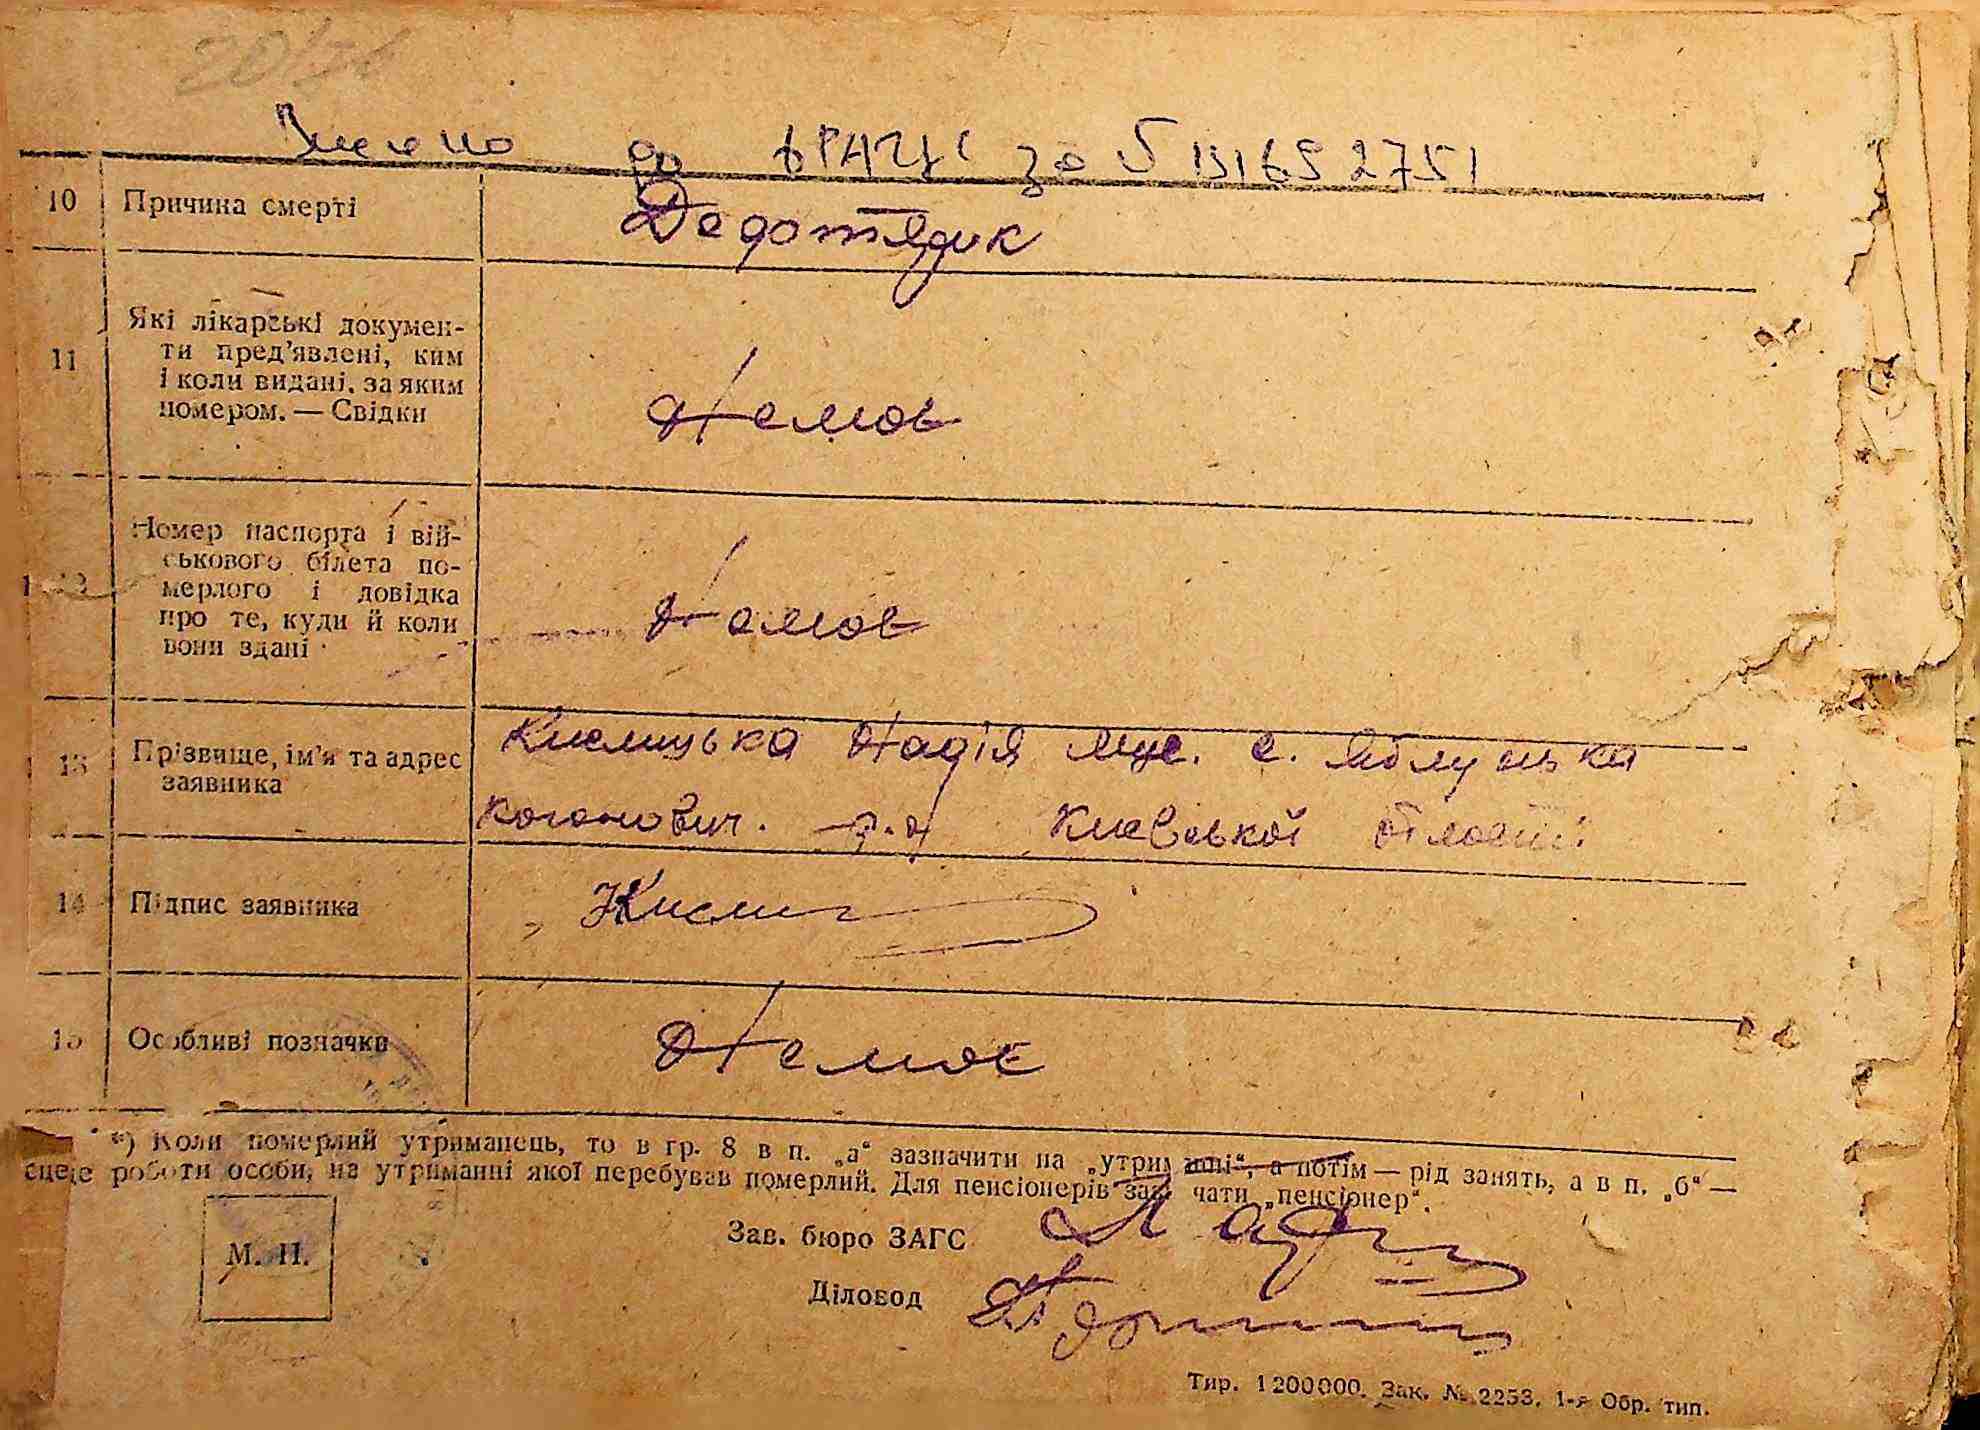 Внесено до ДРАЦС за № 131652751
10 Причина смерті
11 Які лікарські докумен-
ти пред'явлені, ким
і коли видані, за яким
номером. — Свідки
Немає
Номер паспорта і вій-
ськового білета по-
мерлого і довідка
про те, куди й коли
вони здані
Немає
13 Прізвище, ім'я та адрес
заявника
Надія с. Яблунька
р-н Київської області
14 Підпис заявника
15 Особливі позначки
Немає
*) Коли померлий утриманець, то в гр. 8 в п. „а“ зазначити на „утриманні“, а потім — рід занять, а в п. „б“ —
роботи особи, на утриманні якої перебував померлий. Для пенсіонерів зазначати „пенсіонер“.
Зав. бюро ЗАГС
М. П.
Діловод
Тир. 1200000. Зак. № 2253. 1-я Обр. тип.